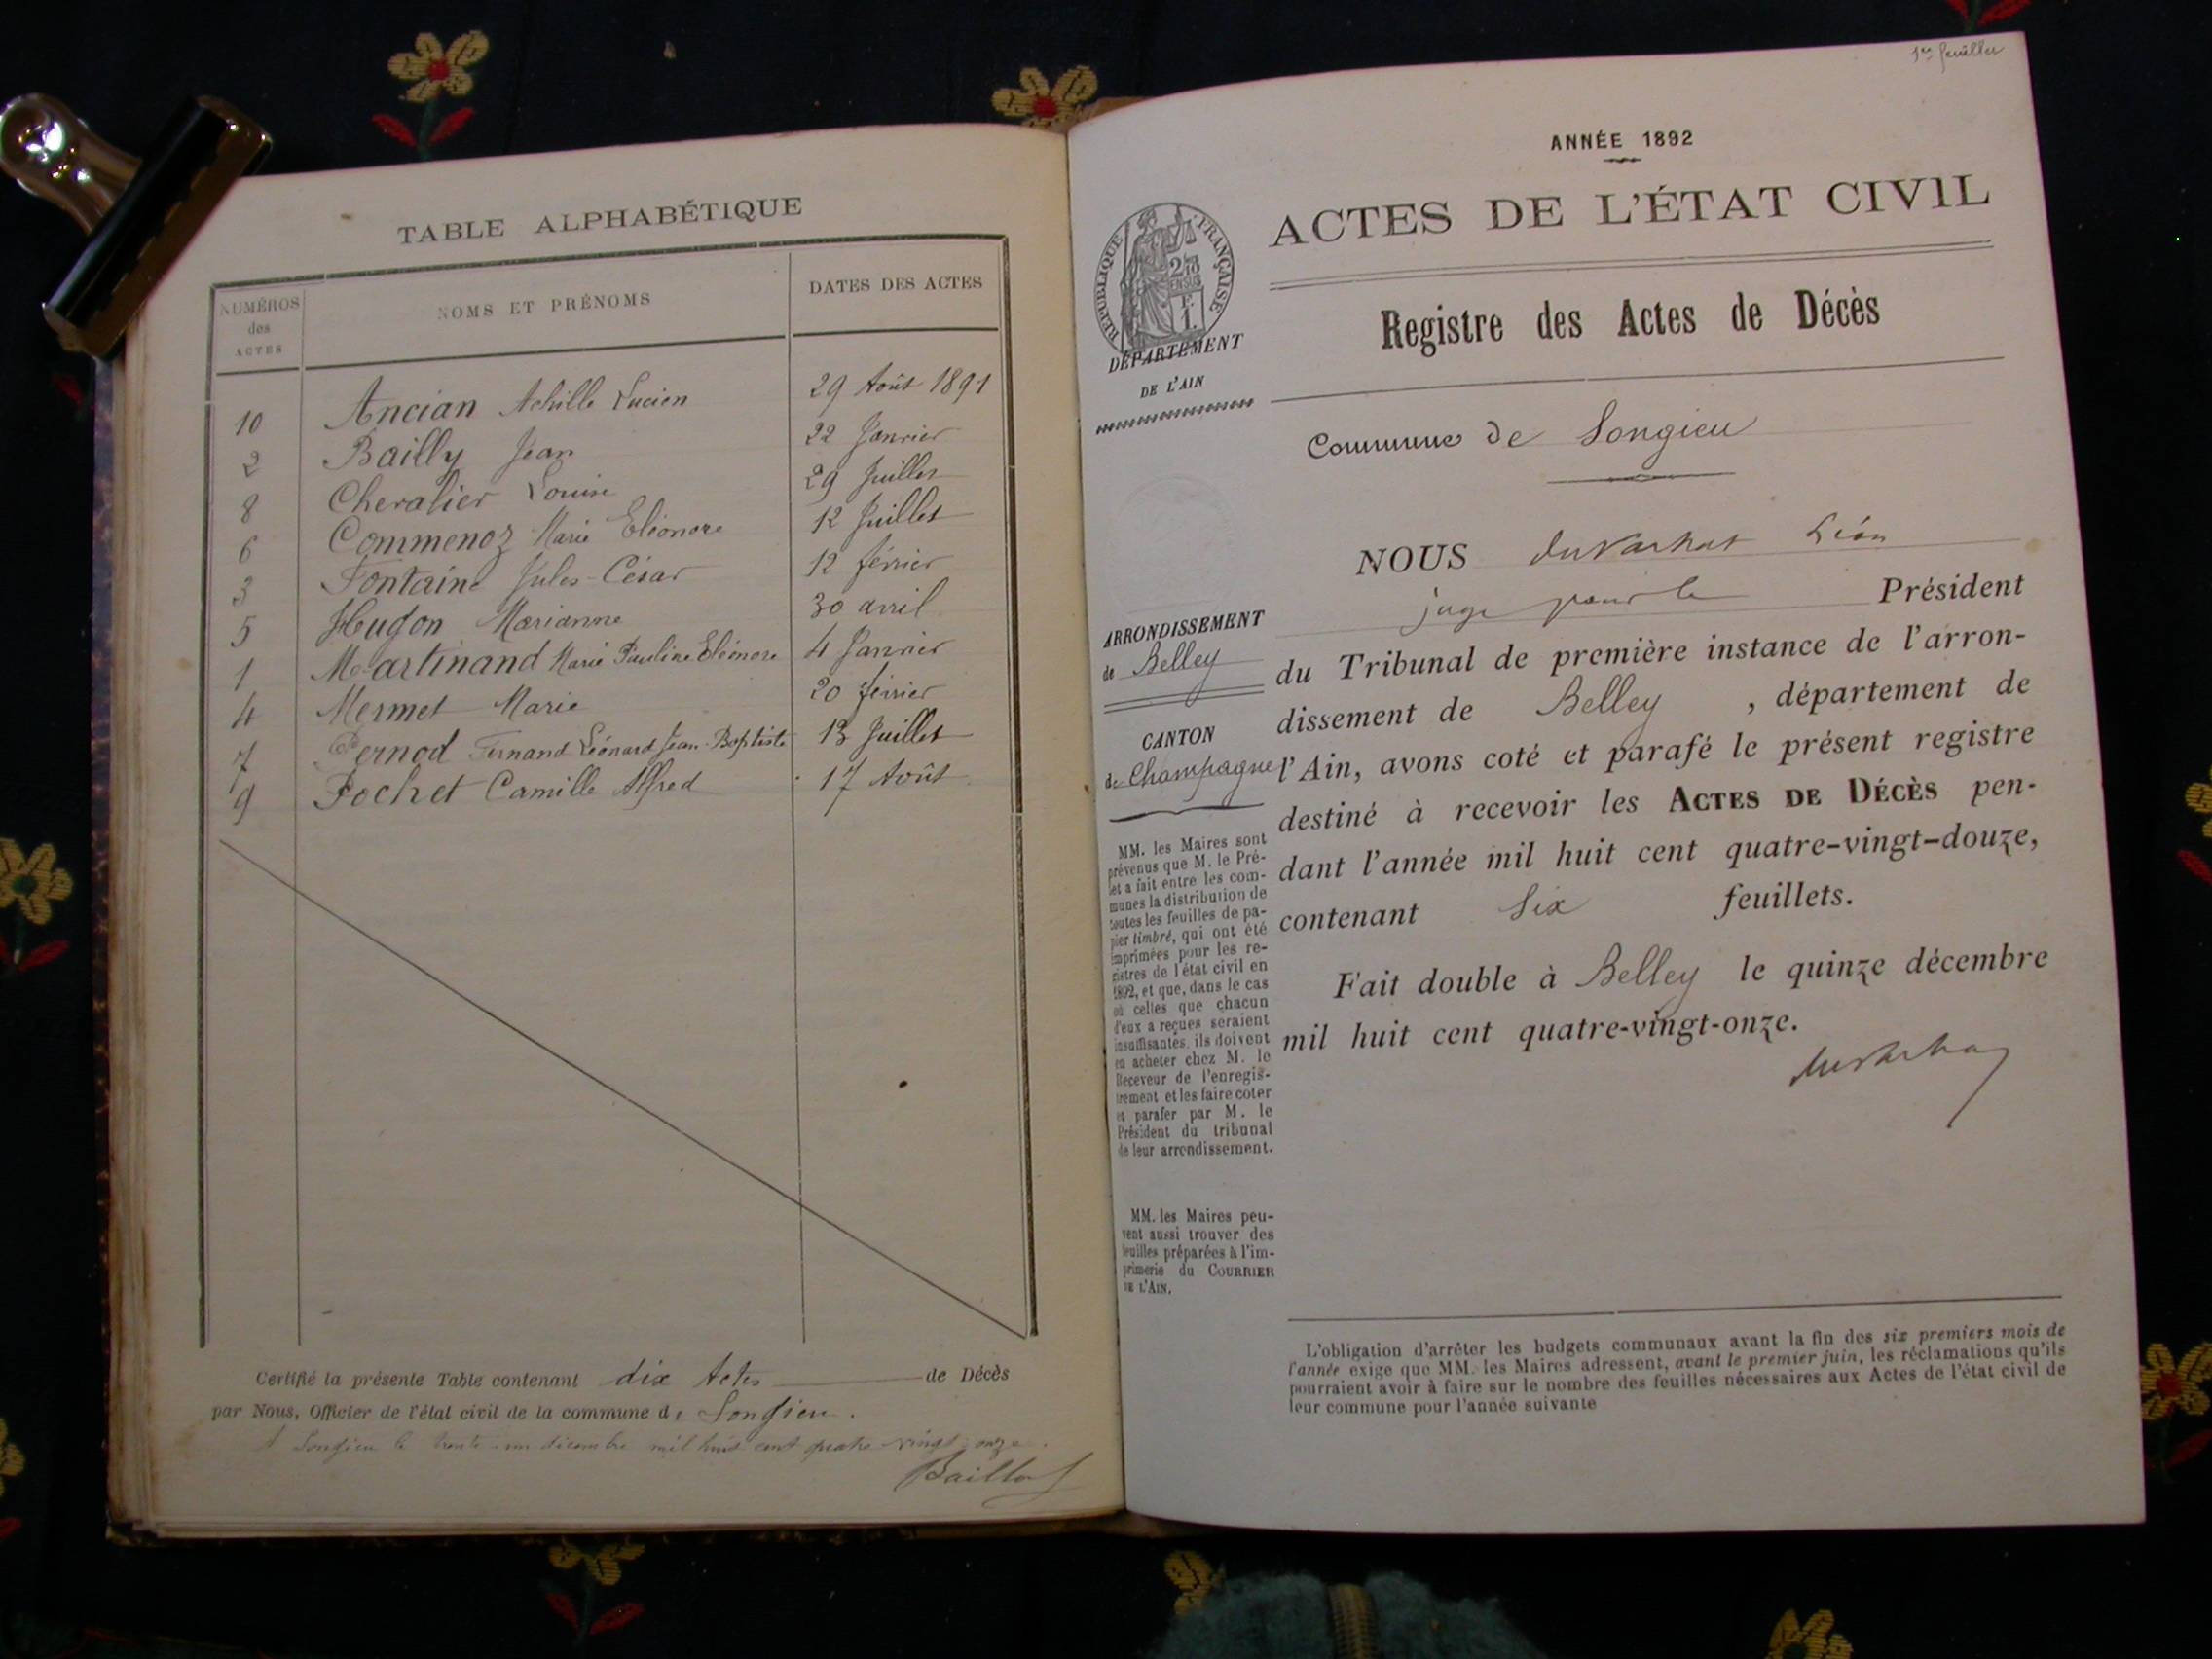 TABLE ALPHABÉTIQUE
NUMÉROS des ACTES
NOMS ET PRÉNOMS
DATES DES ACTES
10 Ancian Achille Lucien 29 Août 1891
2 Bailly Jean 22 Janvier
8 Chevalier Louise 29 Juillet
6 Commenoz Marie Eléonore 12 Juillet
3 Fontaine Jules-César 12 février
5 Hugon Marianne 30 avril
1 Martinand Marie Pauline Eléonore 4 Janvier
4 Mermet Marie 20 février
7 Pernod Fernand Léonard Jean-Baptiste 13 Juillet
9 Pochet Camille Alfred 17 Août
Certifié la présente Table contenant dix Actes de Décès
par Nous, Officier de l'état civil de la commune de Songieu.
A Songieu le trente-un décembre mil huit cent quatre-vingt-onze.
1er feuillet
ANNÉE 1892
ACTES DE L'ÉTAT CIVIL
RÉPUBLIQUE FRANÇAISE
Registre des Actes de Décès
DÉPARTEMENT
DE L'AIN
Commune de Songieu
NOUS Léon
juge pour le Président
ARRONDISSEMENT
de Belley
CANTON
de Champagne
du Tribunal de première instance de l'arron-
dissement de Belley, département de
l'Ain, avons coté et parafé le présent registre
destiné à recevoir les ACTES DE DÉCÈS pen-
dant l'année mil huit cent quatre-vingt-douze,
contenant six feuillets.
Fait double à Belley le quinze décembre
mil huit cent quatre-vingt-onze.
MM. les Maires sont
prévenus que M. le Pré-
fet a fait entre les com-
munes la distribution de
toutes les feuilles de pa-
pier timbré, qui ont été
imprimées pour les re-
gistres de l'état civil en
1892, et que, dans le cas
où celles que chacun
d'eux a reçues seraient
insuffisantes, ils doivent
en acheter chez M. le
Receveur de l'enregis-
trement et les faire coter
et parafer par M. le
Président du tribunal
de leur arrondissement.
MM. les Maires peu-
vent aussi trouver des
feuilles préparées à l'im-
primerie du COURRIER
DE L'AIN.
L'obligation d'arrêter les budgets communaux avant la fin des six premiers mois de
l'année exige que MM. les Maires adressent, avant le premier juin, les réclamations qu'ils
pourraient avoir à faire sur le nombre des feuilles nécessaires aux Actes de l'état civil de
leur commune pour l'année suivante